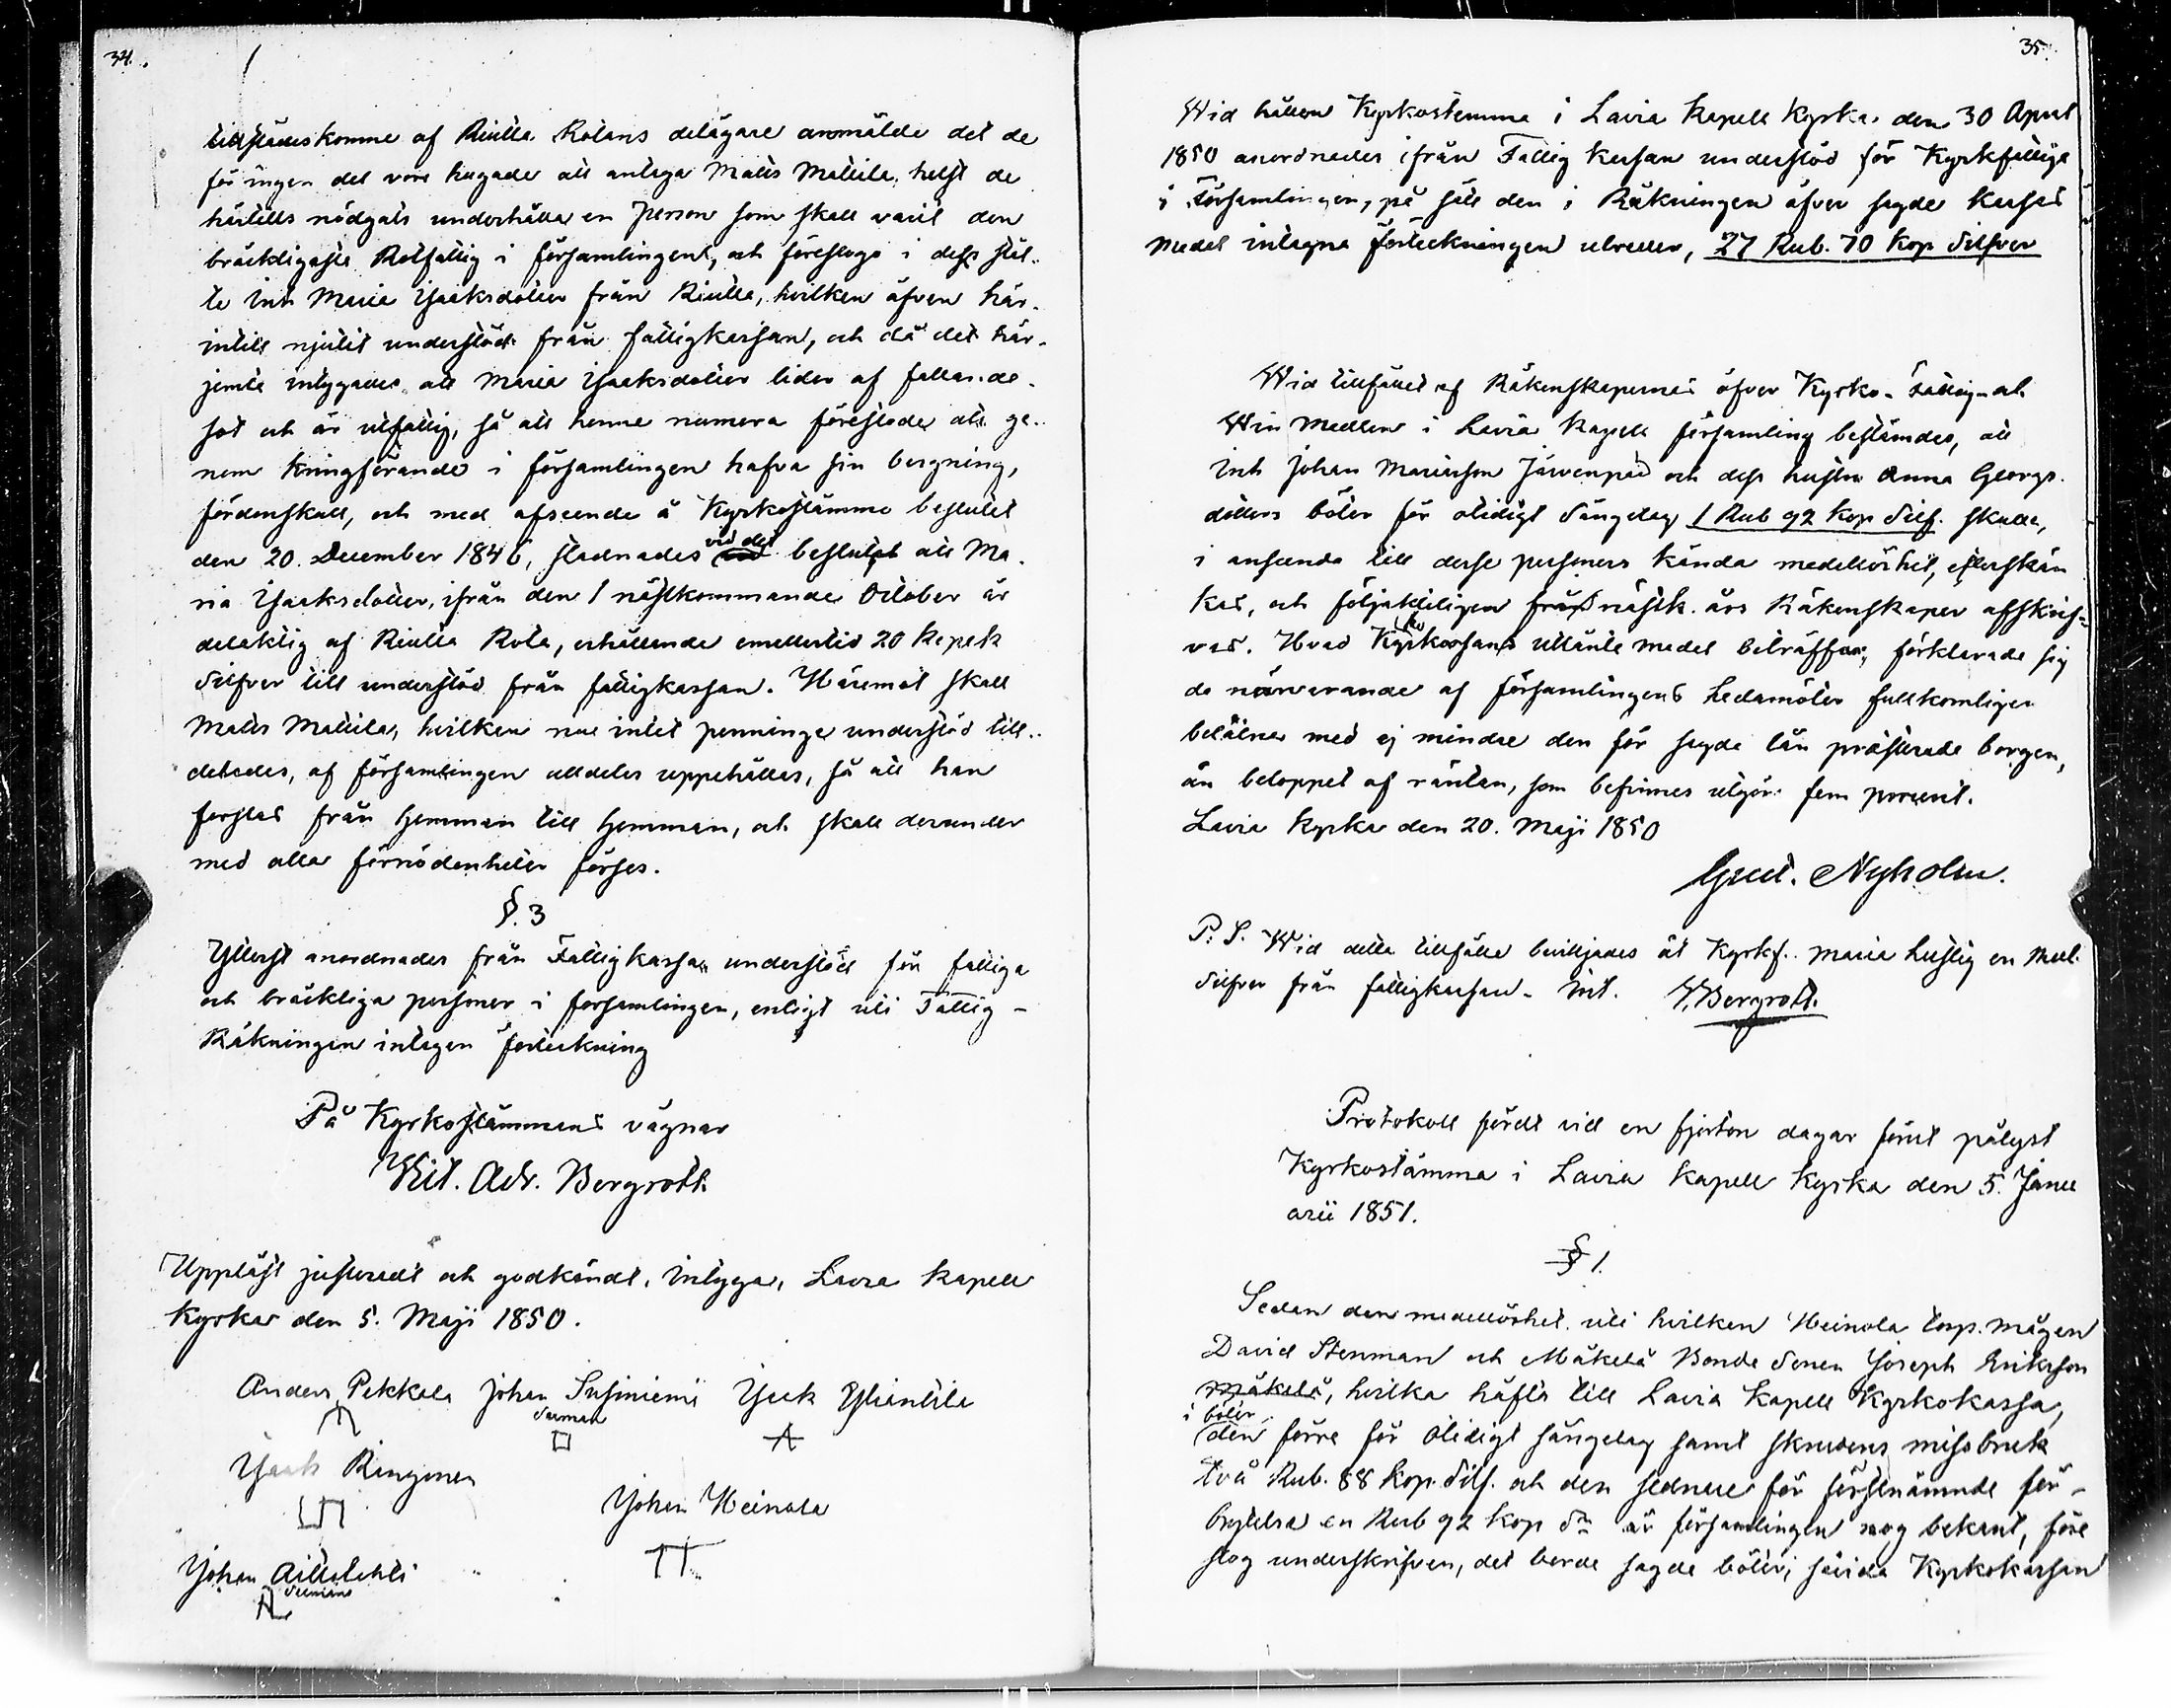 34.
tillstädeskomne af Riutta Rotans delägare anmälde det de
för ingen del vore hugade att antaga Matts Mattila, helst de
härtills nödgats underhålla en person som skall varit den
bräckligaste Rotfattig i församlingen, och föreslogo i dess stäl-
le Inh Maria Isaksdotter från Riutta, hvilken äfven här-
intill njutit understöd från fattigkassan, och då det här-
jemte intygades att Maria Isaksdotter lider af fallande-
sot och är utfattig, så att henne numera förestode att ge-
nom kringförande i församlingen hafva sin bergning,
fördenskull, och med afseende å Kyrkostämmo beslutet
den 20. December 1846, stadnades vid det beslutet att Ma-
ria Isaksdotter, ifrån den 1 nästkommande October är
delaktig af Riutta Rota, erhållande emellertid 20 kopek
Silfver till understöd från fattigkassan. Häremot skall
Matts Mattila, hvilken nu intet penninge understöd till-
delades, af församlingen alldeles uppehållas, så att han
forslas från hemman till hemman, och skall derunder
med alla förnödenheter förses.
§. 3
Ytterst anordnades från Fattigkassan understöd för fattiga
och bräckliga personer i församlingen, enligt uti Fattig-
Räkningen intagen förteckning
På Kyrkostämmans vägnar
Vict. Adr. Bergroth.
Uppläst justeradt och godkändt, intyga, Lavia kapell
kyrka den 5. Maji 1850.
Anders Pekkala Johan Susiniemi Isak Yliantila
Isak Ringinen
Johan Heinola
Johan
35.
Wid hållen Kyrkostemma i Lavia Kapell Kyrka den 30 April
1850 anordnades ifrån Fattig kassan understöd för Kyrkfattige
i Församlingen, på sätt den i Räkningen öfver sagde kassas
medel intagna förteckningen utreder, 27 Rub. 70 Kop Silfver
Wid tillfället af Räkenskapernes öfver Kyrko- Fattig- och
Win Medlen i Lavia Kapell församling bestämdes, att
Inh Johan Mariasson Järvenpää och dess hustru Anna Georgs-
dotters böter för otidigt Sängelag 1 Rub 92 Kop Silf. skulle,
i anseende till desse personers kända medellöshet, efterskän
kas, och följaktligen från nästk. års Räkenskaper afskrif-
vas. Hvad Kyrkokassans utlånte medel beträffar, förklarade sig
de närvarande af församlingens Ledamöter fullkomligen
belåtne med ej mindre den för sagde lån præsterade borgen,
än beloppet af räntan, som befinnes utgöra fem procent.
Lavia Kyrka den 20. Maji 1850
Gust. Nyholm.
P. S. Wid detta tillfälle beviljades åt Kyrkf. Maria Lustig en Rubl.
Silfver från fattigkassan. Int. V. Bergroth.
Protokoll fördt vid en fjorton dagar förut pålyst
Kyrkostämma i Lavia Kapell Kyrka den 5. Janu
arii 1851.
§ 1.
Sedan den medellöshet, uti hvilken Heinola torp. mågen
David Stenman och Mäkelä Bonde Sonen Joseph Eriksson
Mäkelä, hvilka häfta till Lavia Kapell Kyrkokassa,
i böter
den förre för Otidigt sängelag samt skrudens missbruk
två Rub. 88 Kop. Silf. och den sednare för förstnämnde för-
brytelse en Rub 92 Kop Sm är församlingen nog bekant, före
slog underskrifven, det berde sagde böter, såvida Kyrkokassan